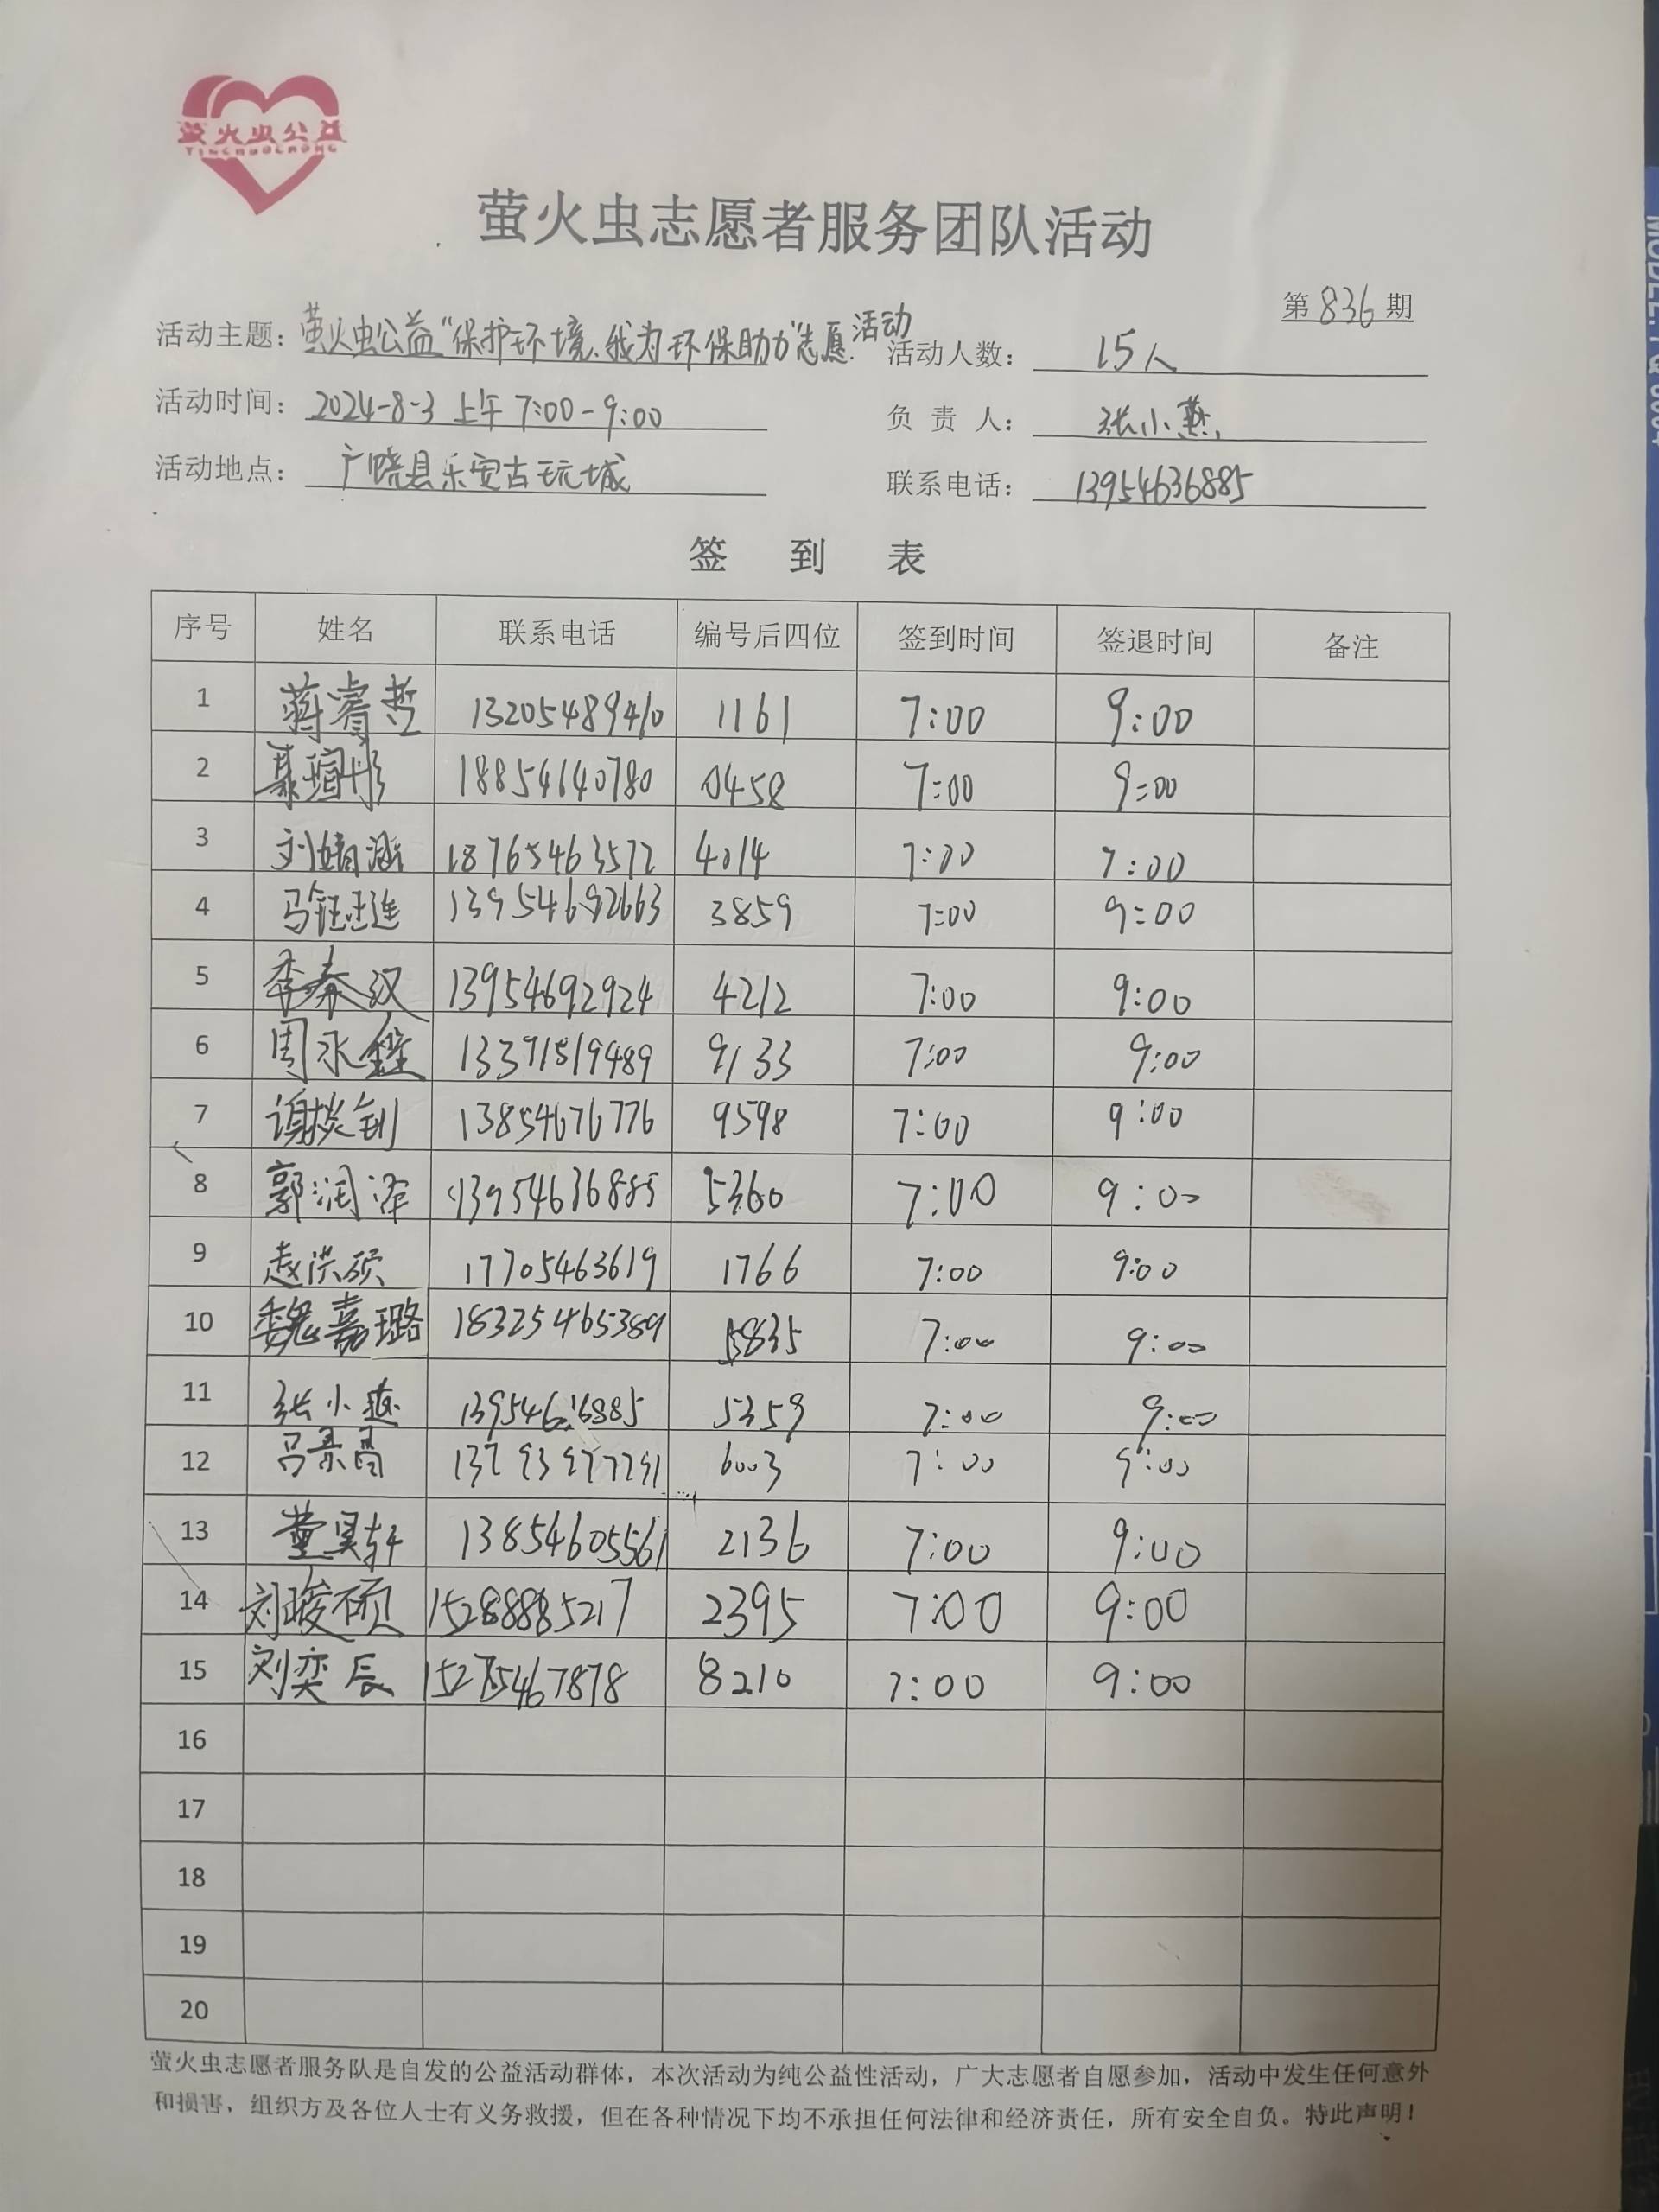 萤火虫公益
YINGHUOCHONG
萤火虫志愿者服务团队活动
第836期
活动主题：萤火虫公益“保护环境、我为环保助力”志愿活动
活动人数：15人
活动时间：2024-8-3 上午 7:00-9:00
负责人：张小燕
活动地点：广饶县乐安古玩城
联系电话：13954636885
签到表
序号 姓名 联系电话 编号后四位 签到时间 签退时间 备注
1 蒋睿哲 13205489410 1161 7:00 9:00
2 18854640780 0458 7:00 9:00
3 18765463572 4014 7:00 7:00
4 马钰涟 13954692663 3859 7:00 9:00
5 李秦汉 13954692924 4212 7:00 9:00
6 周永鑫 13371519489 9133 7:00 9:00
7 13854676776 9598 7:00 9:00
8 郭润泽 13954636885 5360 7:00 9:00
9 赵洪硕 17705463619 1766 7:00 9:00
10 魏嘉璐 183254465389 5835 7:00 9:00
11 张小燕 13954636885 5359 7:00 9:00
12 6003 7:00 9:00
13 董昊轩 13854605561 2136 7:00 9:00
14 刘峻硕 15288885217 2395 7:00 9:00
15 刘奕辰 15275467878 8210 7:00 9:00
16
17
18
19
20
萤火虫志愿者服务队是自发的公益活动群体，本次活动为纯公益性活动，广大志愿者自愿参加，活动中发生任何意外
和损害，组织方及各位人士有义务救援，但在各种情况下均不承担任何法律和经济责任，所有安全自负。特此声明！